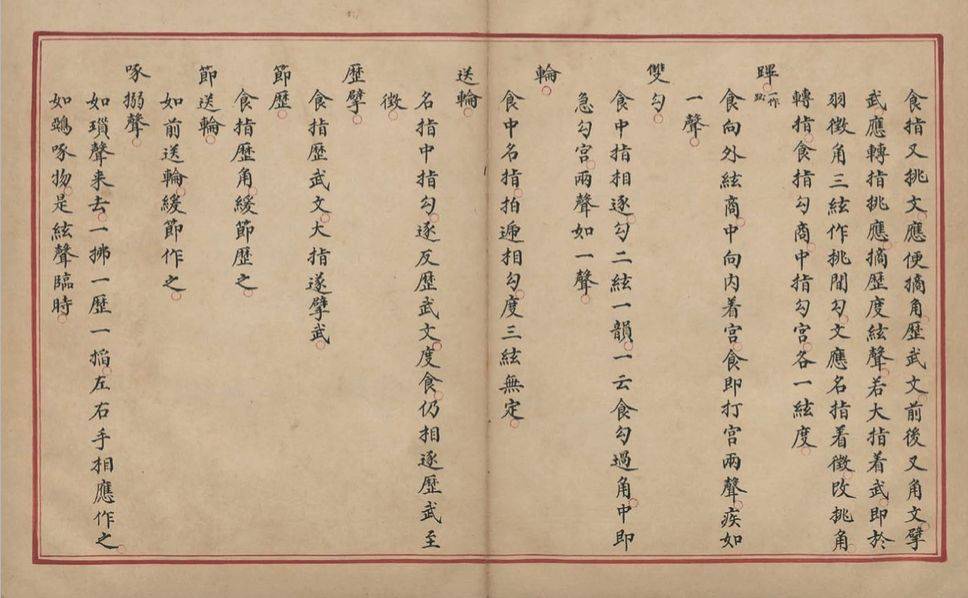 食指又挑文應便摘角歷武文前後又角文擘
武應轉指挑應摘歷度絃聲若大指着武即於
羽徵角三絃作挑間勾文應名指着徵改挑角
轉指食指勾商中指勾宮各一絃度
一作
食向外絃商中向内着宮食即打宮兩聲疾如
一聲
雙勾
食中指相逐勾二絃一韻一云食勾過角中即
急勾宮兩聲如一聲
輪
食中名指拍遞相勾度三絃無定
送輪
名指中指勾逐反歷武文度食仍相逐歷武至
徵
歷擘
食指歷武文大指遂擘武
節歷
食指歷角緩節歷之
節送輪
如前送輪緩節作之
啄搦聲
如瑣聲来去一拂一歷一搯左右手相應作之
如鵶啄物是絃聲臨時